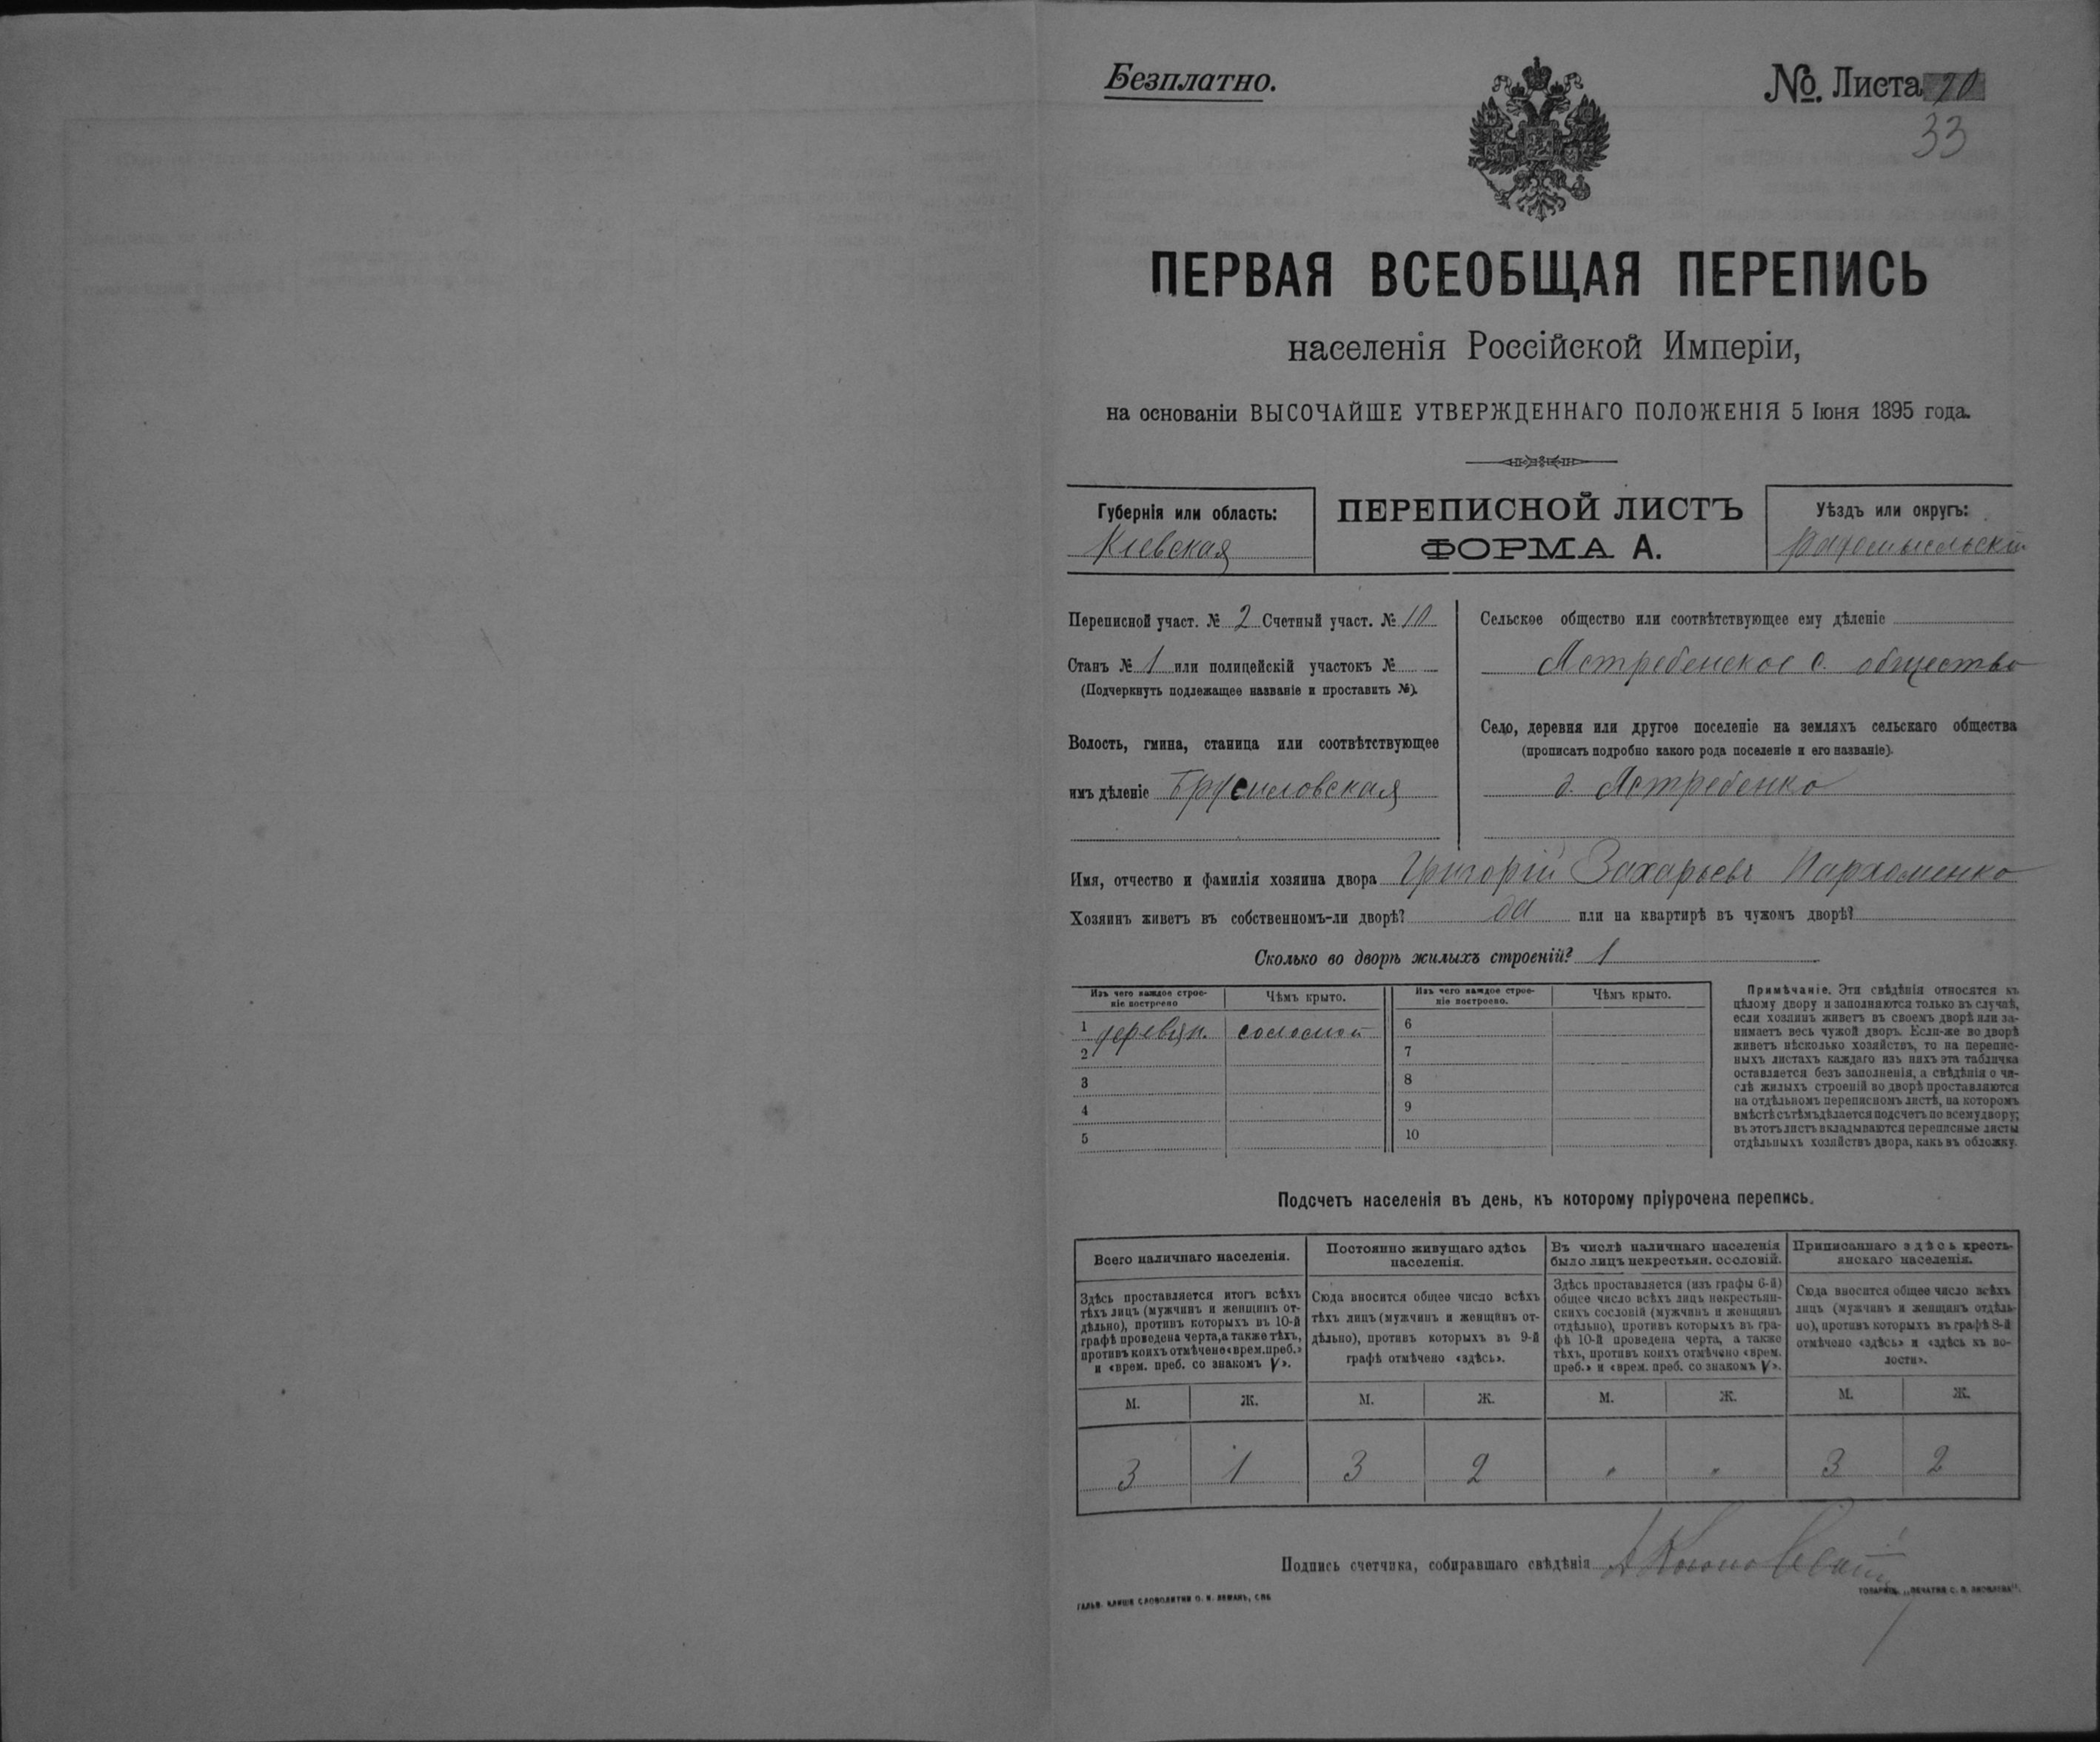 Безплатно.
№. Листа 20
33
ПЕРВАЯ ВСЕОБЩАЯ ПЕРЕПИСЬ
населенія Россійской Имперіи,
на основаніи ВЫСОЧАЙШЕ УТВЕРЖДЕННАГО ПОЛОЖЕНІЯ 5 Іюня 1895 года.
Губернія или область:
Кіевская
ПЕРЕПИСНОЙ ЛИСТЪ
ФОРМА А.
Уѣздъ или округъ:
Радомысльскій
Переписной участ. № 2 Счетный участ. № 10
Станъ № 1 или полицейскій участокъ №
(Подчеркнуть подлежащее названіе и проставить №).
Волость, гмина, станица или соотвѣтствующее
имъ дѣленіе Брусиловская
Сельское общество или соотвѣтствующее ему дѣленіе
Ястребенское с. общество
Село, деревня или другое поселеніе на земляхъ сельскаго общества
(прописать подробно какого рода поселеніе и его названіе).
д. Ястребенко
Имя, отчество и фамилія хозяина двора Григорій Захарьевъ Пархоменко
Хозяинъ живетъ въ собственномъ-ли дворѣ? да или на квартирѣ въ чужомъ дворѣ?
Сколько во дворѣ жилыхъ строеній? 1
Изъ чего каждое строе-
ніе построено
Чѣмъ крыто.
Изъ чего каждое строе-
ніе построено.
Чѣмъ крыто.
1 деревян. соломой
2
3
4
5
6
7
8
9
10
Примѣчаніе. Эти свѣдѣнія относятся къ
цѣлому двору и заполняются только въ случаѣ,
если хозяинъ живетъ въ своемъ дворѣ или за-
нимаетъ весь чужой дворъ. Если-же во дворѣ
живетъ нѣсколько хозяйствъ, то на перепис-
ныхъ листахъ каждаго изъ нихъ эта табличка
оставляется безъ заполненія, а свѣдѣнія о чи-
слѣ жилыхъ строеній во дворѣ проставляются
на отдѣльномъ переписномъ листѣ, на которомъ
вмѣстѣ съ тѣмъ дѣлается подсчетъ по всему двору;
въ этотъ листъ вкладываются переписные листы
отдѣльныхъ хозяйствъ двора, какъ въ обложку.
Подсчетъ населенія въ день, къ которому пріурочена перепись.
Всего наличнаго населенія.
Здѣсь проставляется итогъ всѣхъ
тѣхъ лицъ (мужчинъ и женщинъ от-
дѣльно), противъ которыхъ въ 10-й
графѣ проведена черта, а также тѣхъ,
противъ коихъ отмѣчено «врем. преб.»
и «врем. преб. со знакомъ V».
Постоянно живущаго здѣсь
населенія.
Сюда вносится общее число всѣхъ
тѣхъ лицъ (мужчинъ и женщинъ от-
дѣльно), противъ которыхъ въ 9-й
графѣ отмѣчено «здѣсь».
Въ числѣ наличнаго населенія
было лицъ некрестьян. сословій.
Здѣсь проставляется (изъ графы 6-й)
общее число всѣхъ лицъ некрестьян-
скихъ сословій (мужчинъ и женщинъ
отдѣльно), противъ которыхъ въ гра-
фѣ 10-й проведена черта, а также
тѣхъ, противъ коихъ отмѣчено «врем.
преб.» и «врем. преб. со знакомъ V».
Приписаннаго здѣсь кресть-
янскаго населенія.
Сюда вносится общее число всѣхъ
лицъ (мужчинъ и женщинъ отдѣль-
но), противъ которыхъ въ графѣ 8-й
отмѣчено «здѣсь» и «здѣсь къ во-
лости».
М. Ж. М. Ж. М. Ж. М. Ж.
3 1 3 2 " " 3 2
Подпись счетчика, собиравшаго свѣдѣнія
ГАЛЬВ. КЛИШЕ СЛОВОЛИТНИ О. И. ЛЕМАНЪ, СПБ.
ТОВАРИЩ. „ПЕЧАТНЯ С. П. ЯКОВЛЕВА".